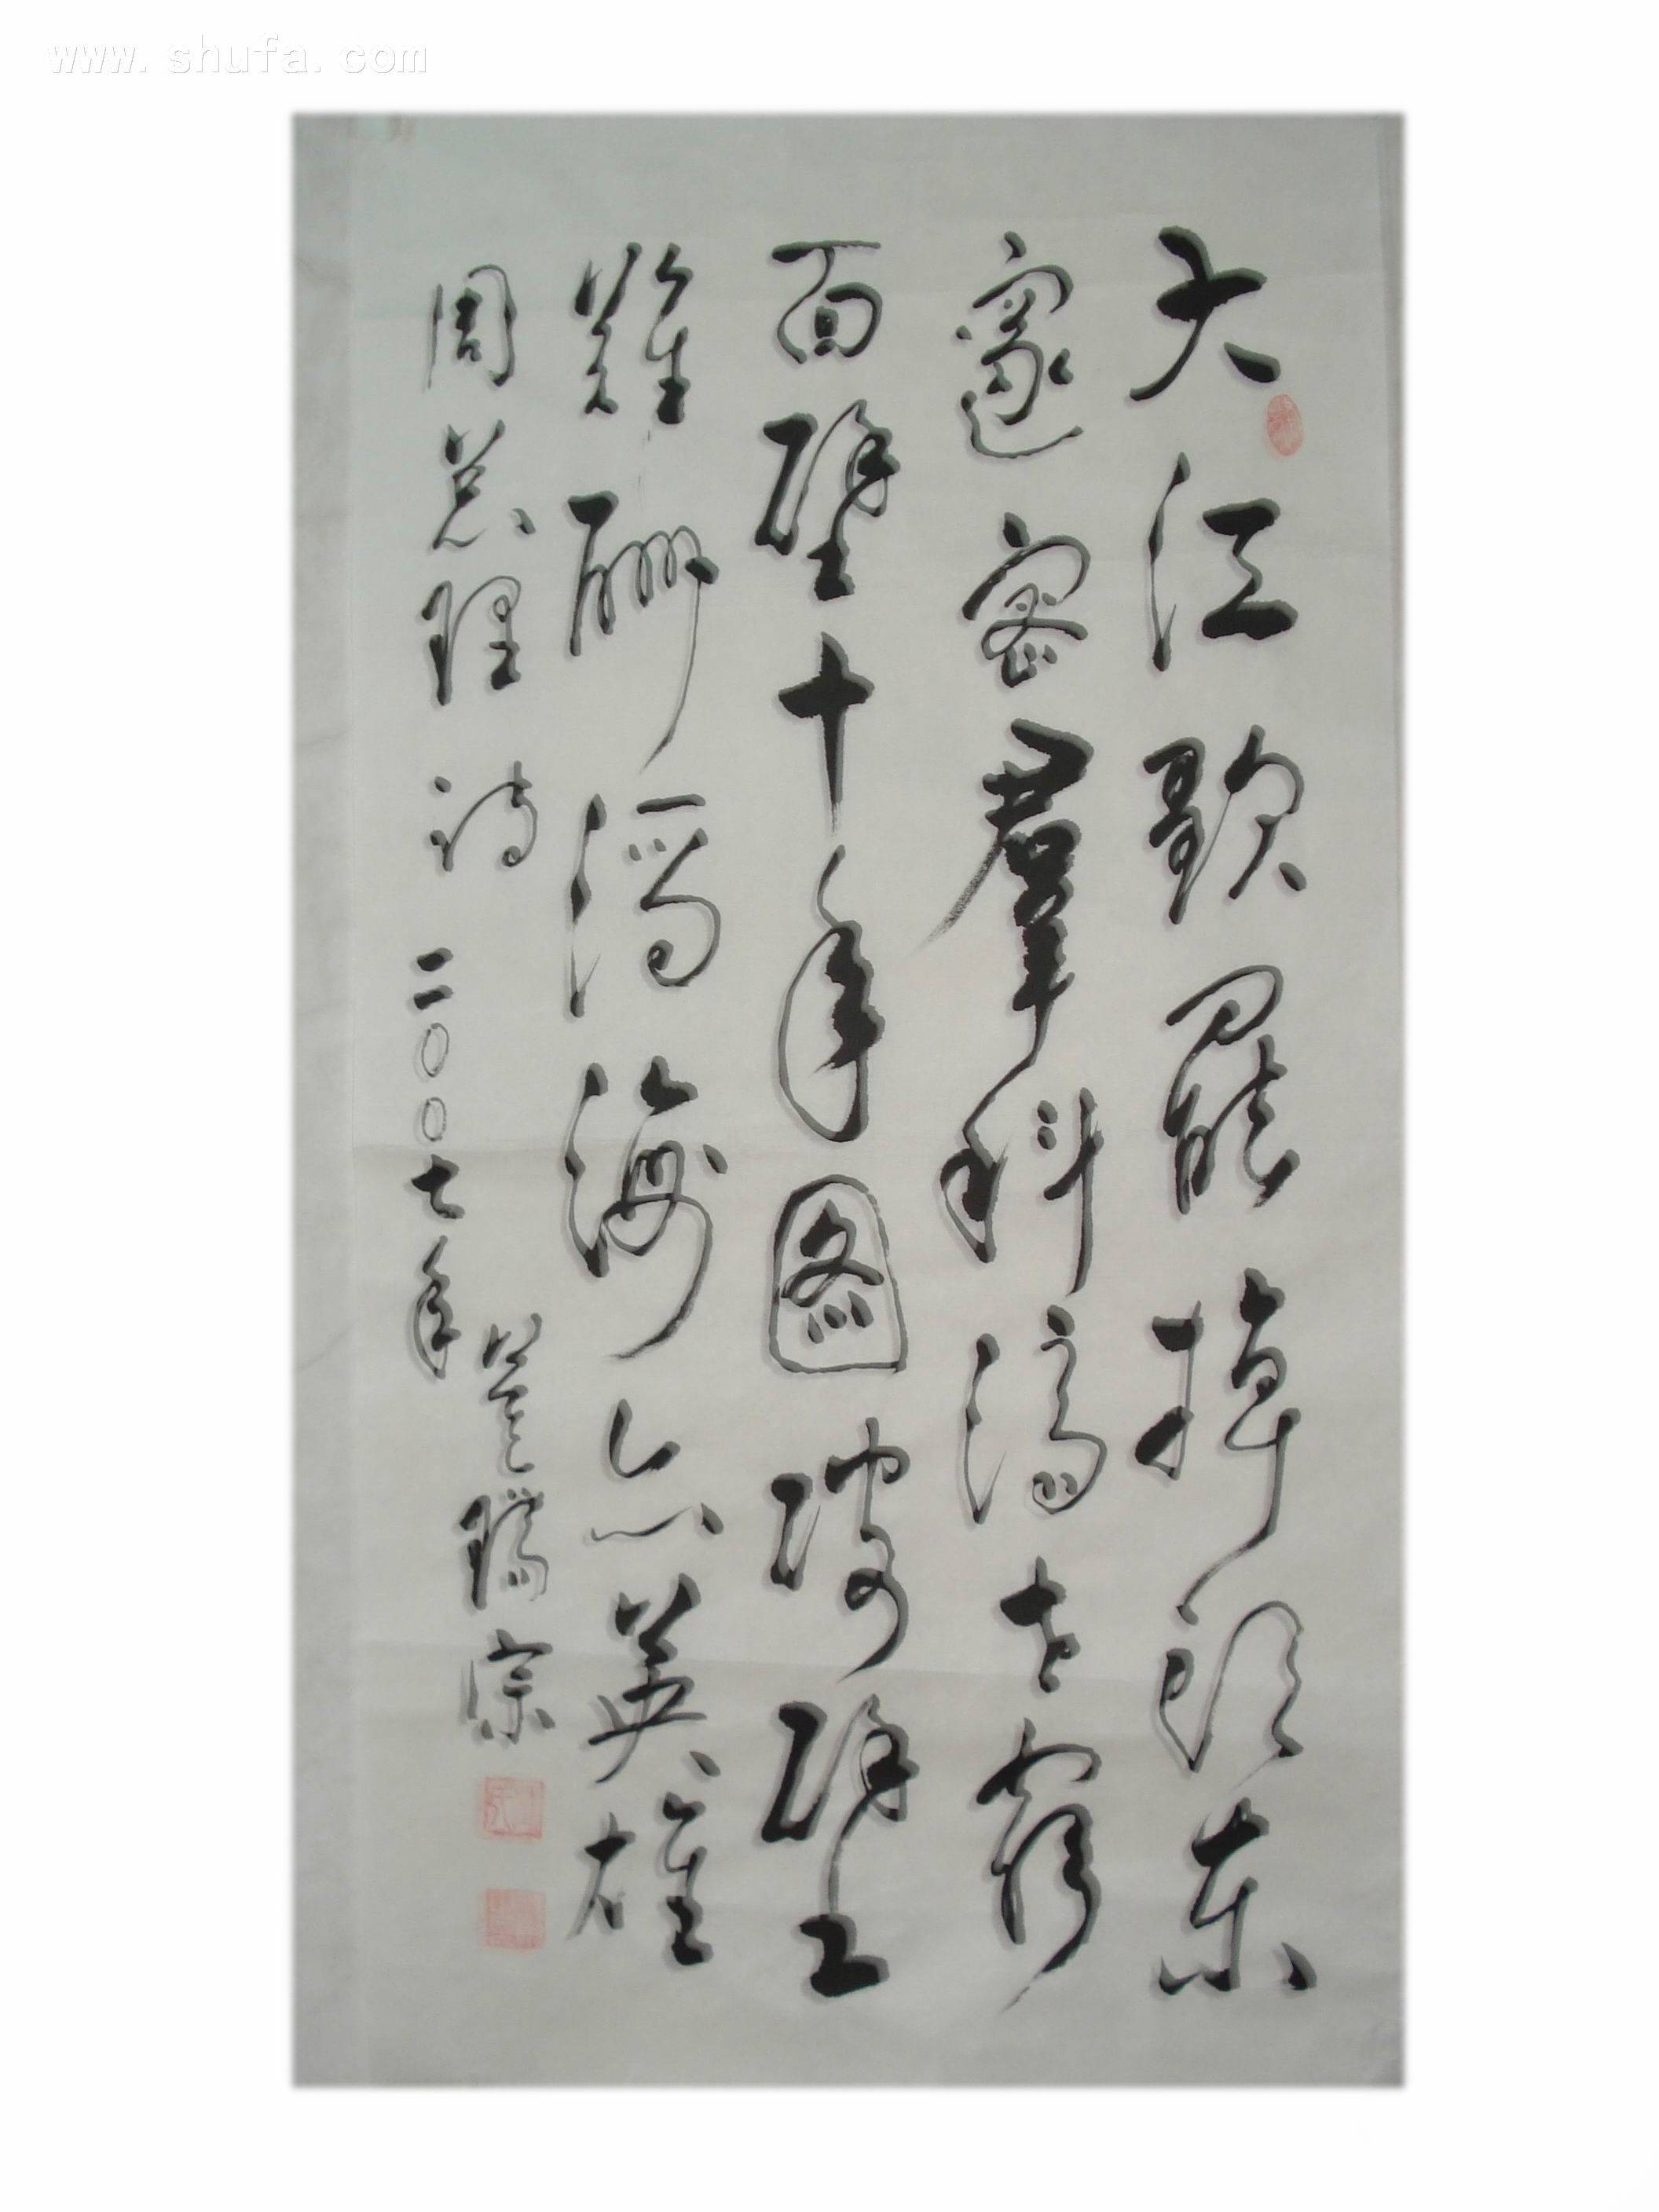 www.shufa.com
大江歌罷掉頭東
邃密羣科濟世窮
面壁十年图破壁
難酬滔海亦英雄
周总理诗 二〇〇七年
瑞宗